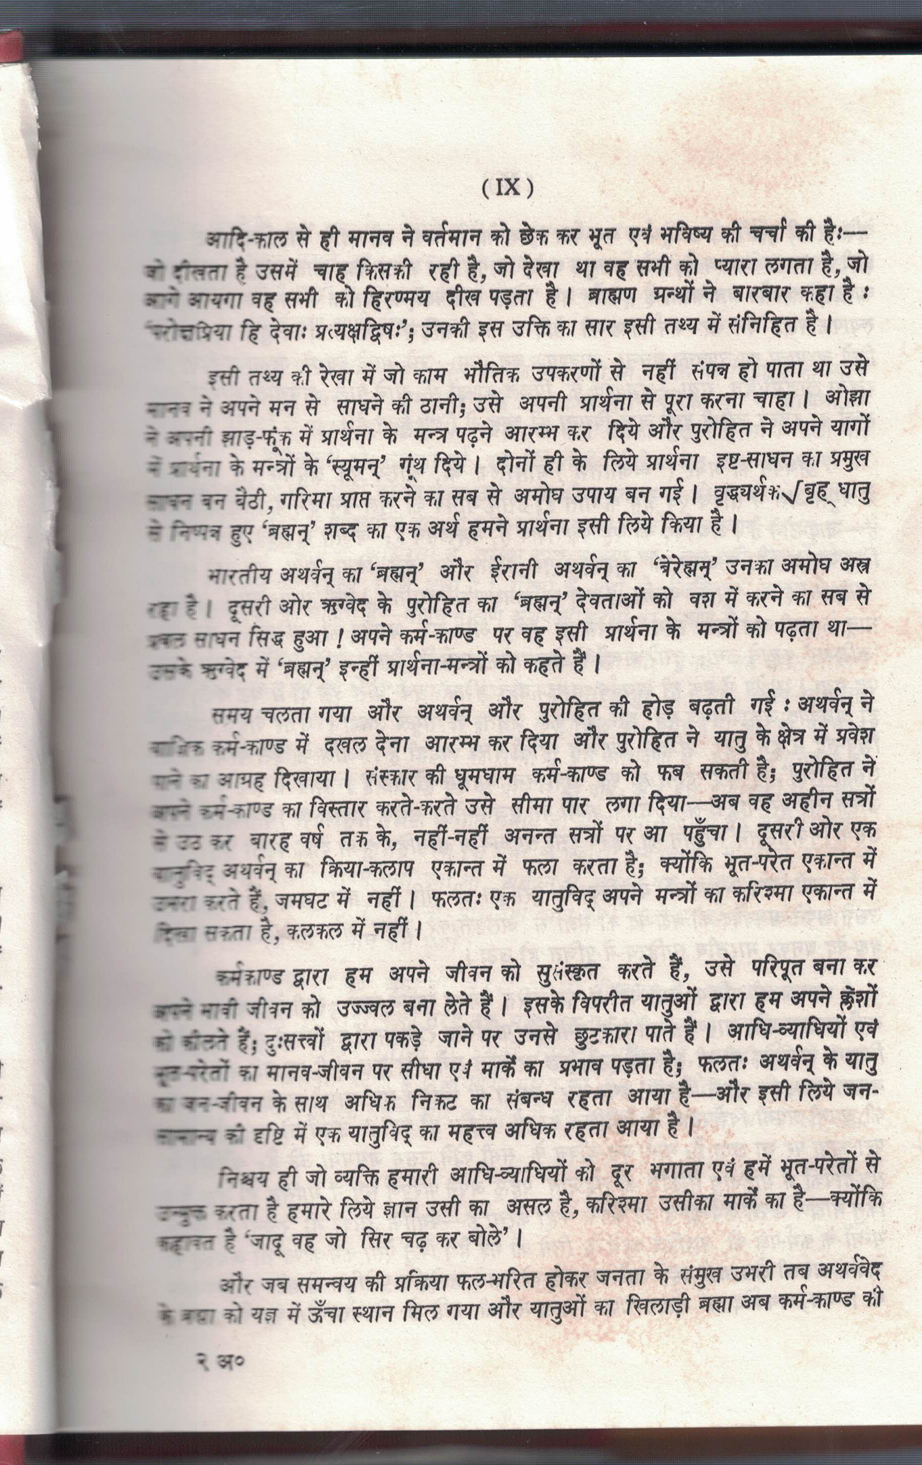 (IX)
आदि-काल से ही मानव ने वर्तमान को छेक कर भूत एवं भविष्य की चर्चा की है:—
जो दीखता है उसमें चाह किसकी रही है, जो देखा था वह सभी को प्यारा लगता है, जो
आगे आयगा वह सभी को हिरण्मय दीख पड़ता है। ब्राह्मण ग्रन्थों ने बारबार कहा है :
'परोक्षप्रिया हि देवाः प्रत्यक्षद्विषः'; उनकी इस उक्ति का सार इसी तथ्य में संनिहित है।
इसी तथ्य की रेखा में जो काम भौतिक उपकरणों से नहीं संपन्न हो पाता था उसे
मानव ने अपने मन से साधने की ठानी; उसे अपनी प्रार्थना से पूरा करना चाहा। ओझा
ने अपनी झाड़-फूंक में प्रार्थना के मन्त्र पढ़ने आरम्भ कर दिये और पुरोहित ने अपने यागों
में प्रार्थना के मन्त्रों के 'स्यूमन्' गूंथ दिये। दोनों ही के लिये प्रार्थना इष्ट-साधन का प्रमुख
साधन बन बैठी, गरिमा प्राप्त करने का सब से अमोघ उपाय बन गई। वृद्ध्यर्थक √बृह् धातु
से निष्पन्न हुए 'ब्रह्मन्' शब्द का एक अर्थ हमने प्रार्थना इसी लिये किया है।
भारतीय अथर्वन् का 'ब्रह्मन्' और ईरानी अथर्वन् का 'बेरेह्मम्' उनका अमोघ अस्त्र
रहा है। दूसरी ओर ऋग्वेद के पुरोहित का 'ब्रह्मन्' देवताओं को वश में करने का सब से
प्रबल साधन सिद्ध हुआ ! अपने कर्म-काण्ड पर वह इसी प्रार्थना के मन्त्रों को पढ़ता था—
उसके ऋग्वेद में 'ब्रह्मन्' इन्हीं प्रार्थना-मन्त्रों को कहते हैं।
समय चलता गया और अथर्वन् और पुरोहित की होड़ बढ़ती गई : अथर्वन् ने
याज्ञिक कर्म-काण्ड में दखल देना आरम्भ कर दिया और पुरोहित ने यातु के क्षेत्र में प्रवेश
पाने का आग्रह दिखाया। संस्कार की धूमधाम कर्म-काण्ड को फब सकती है; पुरोहित ने
अपने कर्म-काण्ड का विस्तार करते-करते उसे सीमा पार लगा दिया—अब वह अहीन सत्रों
से उठ कर बारह वर्ष तक के, नहीं-नहीं अनन्त सत्रों पर आ पहुँचा। दूसरी ओर एक
यातुविद् अथर्वन् का क्रिया-कलाप एकान्त में फला करता है; क्योंकि भूत-परेत एकान्त में
उभरा करते हैं, जमघट में नहीं। फलतः एक यातुविद् अपने मन्त्रों का करिश्मा एकान्त में
दिखा सकता है, कलकल में नहीं।
कर्मकाण्ड द्वारा हम अपने जीवन को सुसंस्कृत करते हैं, उसे परिपूत बना कर
अपने भावी जीवन को उज्ज्वल बना लेते हैं। इसके विपरीत यातुओं द्वारा हम अपने क्लेशों
को कीलते हैं; दुःसत्त्वों द्वारा पकड़े जाने पर उनसे छुटकारा पाते हैं। आधि-व्याधियों एवं
भूत-परेतों का मानव-जीवन पर सीधा एवं मार्के का प्रभाव पड़ता है; फलतः अथर्वन् के यातु
का जन-जीवन के साथ अधिक निकट का संबन्ध रहता आया है—और इसी लिये जन-
सामान्य की दृष्टि में एक यातुविद् का महत्त्व अधिक रहता आया है।
निश्चय ही जो व्यक्ति हमारी आधि-व्याधियों को दूर भगाता एवं हमें भूत-परेतों से
उन्मुक्त करता है हमारे लिये ज्ञान उसी का असल है, करिश्मा उसीका मार्के का है—क्योंकि
कहावत है 'जादू वह जो सिर चढ़ कर बोले'।
और जब समन्वय की प्रक्रिया फल-भरित होकर जनता के संमुख उभरी तब अथर्ववेद
के ब्रह्मा को यज्ञ में ऊँचा स्थान मिल गया और यातुओं का खिलाड़ी ब्रह्मा अब कर्म-काण्ड की
२ अ०